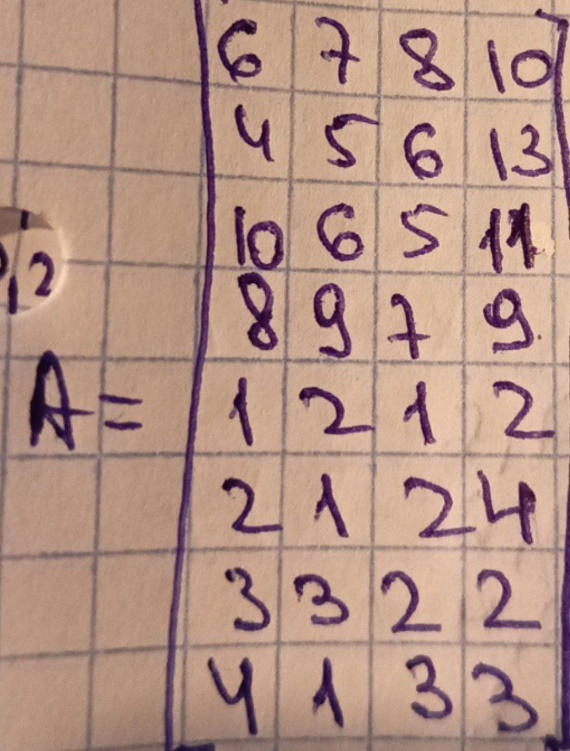 6 7 8 10
4 5 6 13
10 6 5 11
,2
8 9 7 9
A= 1 2 1 2
2 1 2 4
3 3 2 2
4 1 3 3